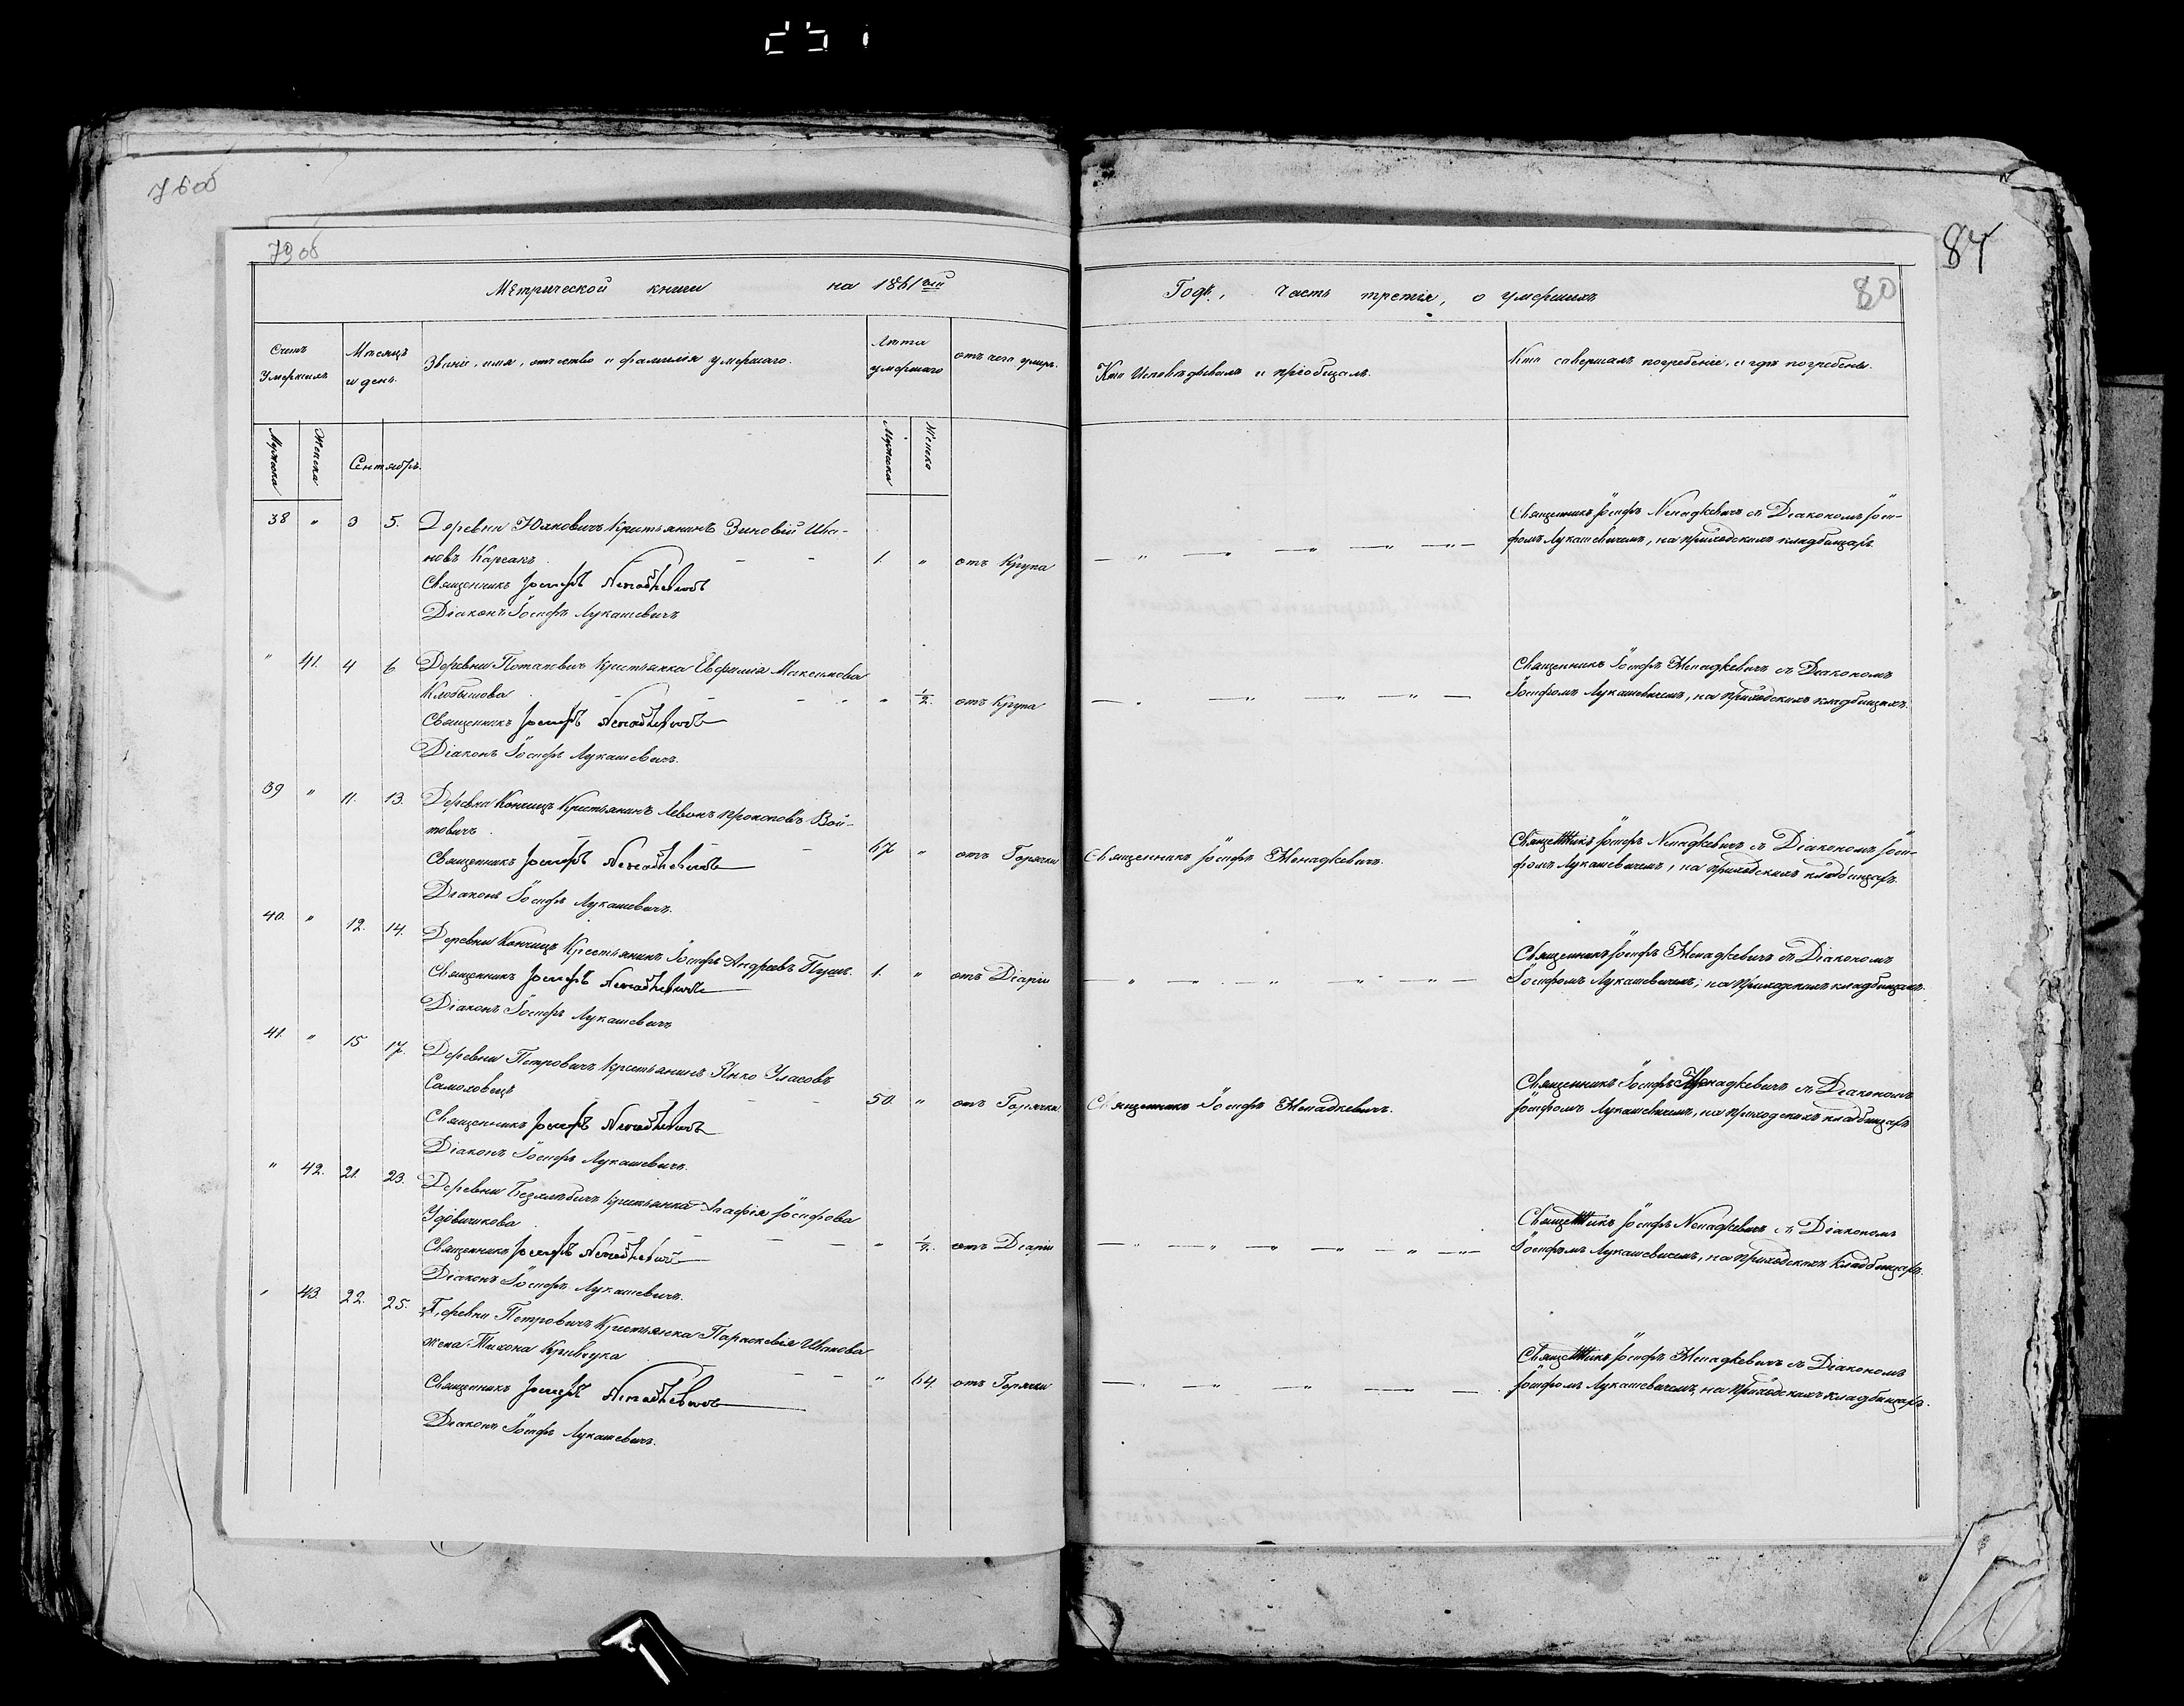 251
76 об
79 об
84
80
Метрической книги на 1861ый
Годъ, Часть третія, о умершихъ
Счетъ Умершихъ
Мѣсяцъ и день.
Званіе, имя, отчество и фамилія умершаго.
Лѣта умершаго
отъ чего умеръ.
Кто Исповѣдывалъ и пріобщалъ.
Кто совершалъ погребеніе, и гдѣ погребены.
Мужска
Женска
Сентябрь.
Мужска
Женско
38 " 3 5. Деревни Юхновичъ Крестьянинъ Зиновій Ива-
новъ Карсакъ. 1. " отъ Крупа
Священникъ Іосифъ Ненадкевичъ
Діаконъ Іосифъ Лукашевичъ
Священникъ Іосифъ Ненадкевичъ съ Діакономъ Іоси-
фомъ Лукашевичемъ, на приходскихъ кладбищахъ.
" 41. 4 6 Деревни Потаповичъ Крестьянка Евфимія Максимова
" 1/2. отъ Крупа
Священникъ Іосифъ Ненадкевичъ
Діаконъ Іосифъ Лукашевичъ.
Священникъ Іосифъ Ненадкевичъ съ Діакономъ
Іосифомъ Лукашевичемъ, на приходскихъ кладбищахъ.
39 " 11. 13. Деревни Кончицъ Крестьянинъ Левонъ Прокоповъ Вой-
товичъ. 67 " отъ Горячки
Священникъ Іосифъ Ненадкевичъ
Діаконъ Іосифъ Лукашевичъ.
Священникъ Іосифъ Ненадкевичъ.
Священникъ Іосифъ Ненадкевичъ съ Діакономъ Іоси-
фомъ Лукашевичемъ, на приходскихъ кладбищахъ.
40. " 12. 14. Деревни Кончицъ Крестьянинъ Іосифъ Андреевъ Пуцъ. 1. " отъ Діаріи
Священникъ Іосифъ Ненадкевичъ
Діаконъ Іосифъ Лукашевичъ
Священникъ Іосифъ Ненадкевичъ съ Діакономъ
Іосифомъ Лукашевичемъ, на приходскихъ кладбищахъ.
41. " 15 17. Деревни Петровичъ Крестьянинъ Янко Уласовъ
Самоховецъ 50. " отъ Горячки
Священникъ Іосифъ Ненадкевичъ
Діаконъ Іосифъ Лукашевичъ.
Священникъ Іосифъ Ненадкевичъ.
Священникъ Іосифъ Ненадкевичъ съ Діакономъ
Іосифомъ Лукашевичемъ, на приходскихъ кладбищахъ
" 42. 21. 23. Деревни Безхлѣбичъ Крестьянка Агафія Іосифова
Удовичикова. " отъ Діаріи
Священникъ Іосифъ Ненадкевичъ
Діаконъ Іосифъ Лукашевичъ.
Священникъ Іосифъ Ненадкевичъ съ Діакономъ
Іосифомъ Лукашевичемъ, на приходскихъ кладбищахъ.
" 43. 22. 25. Деревни Петровичъ Крестьянка Параскевія Иванова
жена Тихона Кривчука " 64. отъ Горячки
Священникъ Іосифъ Ненадкевичъ
Діаконъ Іосифъ Лукашевичъ.
Священникъ Іосифъ Ненадкевичъ съ Діакономъ
Іосифомъ Лукашевичемъ, на приходскихъ кладбищахъ.